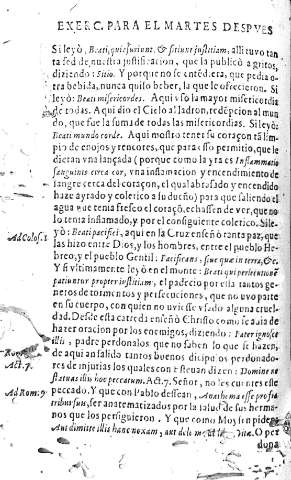 EXERC. PARA EL MARTES DESPVES
Si leyò, Beati, qui esuriunt, & sitiunt justitiam, alli tuvo tan
ta sed de nuestra justificacion, que la publicò a gritos,
diziendo: Sitio. Y porque no se entēdiera, que pedia o-
tra bebida, nunca quiso beber, la que le ofrecieron. Si
leyò: Beati misericordes. Aqui vso la mayor misericordia
de todas. Aqui dio el Cielo al ladron, redēpcion al mun
do, que fue la suma de todas las misericordias. Si leyò:
Beati mundo corde. Aqui mostrò tener su coraçon tã lim
pio de enojos y rencores, que para esso permitio, que le
dieran vna lançada (porque como la yra es Inflammatio
sanguinis circa cor, vna inflamacion y encendimiento de
sangre cerca del coraçon, el qual abrasado y encendido
haze ayrado y colerico a su dueño) para que saliendo el
agua que tenia fresco el coraçõ, echassen de ver, que no
lo tenia inflamado, y por el consiguiente colerico. Si le-
yò: Beati pacifici, aqui en la Cruz enseñò tanta paz, que
Ad Colos. 1
las hizo entre Dios, y los hombres, entre el pueblo He-
breo, y el pueblo Gentil: Pacificans, siue quæ in terra, &c.
Y si vltimamente leyò en el monte: Beati qui persecutionē
patiuntur propter iustitiam, el padecio por ella tantos ge-
neros de tormentos y persecuciones, que no uvo parte
en su cuerpo, con quien no uviesse vsado alguna cruel-
dad. Desde esta catreda enseñò Christo como se avia de
hazer oracion por los enemigos, diziendo: Pater ignosce
illis, padre perdonalos que no saben lo que se hazen,
de aqui an salido tantos buenos dicipulos perdonado-
res de injurias los quales con Esteuan dizen: Domine ne
Act. 7.
statuas illis hoc peccatum. Act. 7. Señor, no les cuentes este
Ad Rom. 9
peccado. Y que con Pablo dessean, Anathema esse pro fra
tribus suis, ser anatematizados por la salud de sus herma-
nos que los persiguieron. Y que como Moysen piden
Aut dimitte illis hanc noxam, aut dele me de libro vitæ. O per
dona